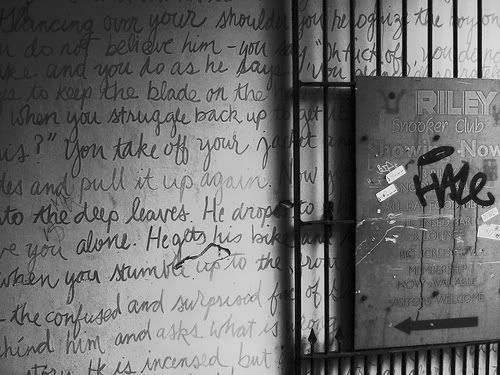 Glancing over your shoulder you
u do not believe him - you say "
ke and you do as he says. "you
s to keep the blade on the
when you struggle back up to get it
is?" You take off your jacket and
des and pull it up again. Now y
to the deep leaves. He drops to
ve you alone. He gets his bike and
when you stumble up to the
- the confused and surprised
hind him and asks what is
story. He is incensed, but
RILEY
Snooker Club
Showing Now
HALE
MEMBERSHIP
NOW AVAILABLE
VISITORS WELCOME